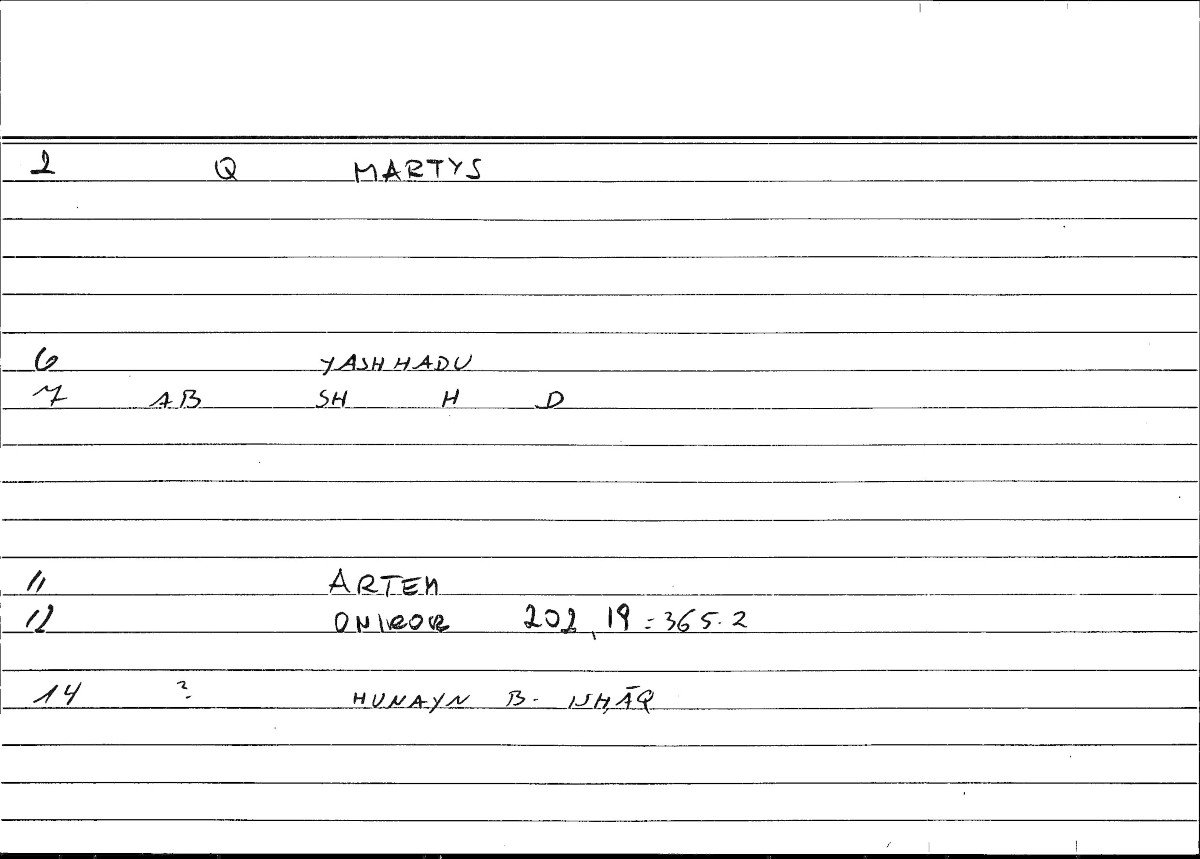 2 Q MARTYS
6 YASHHADU
7 AB SH H D
11 ARTEM
12 ONIROR 202, 19 = 365.2
14 ? HUNAYN B. ISḤĀQ